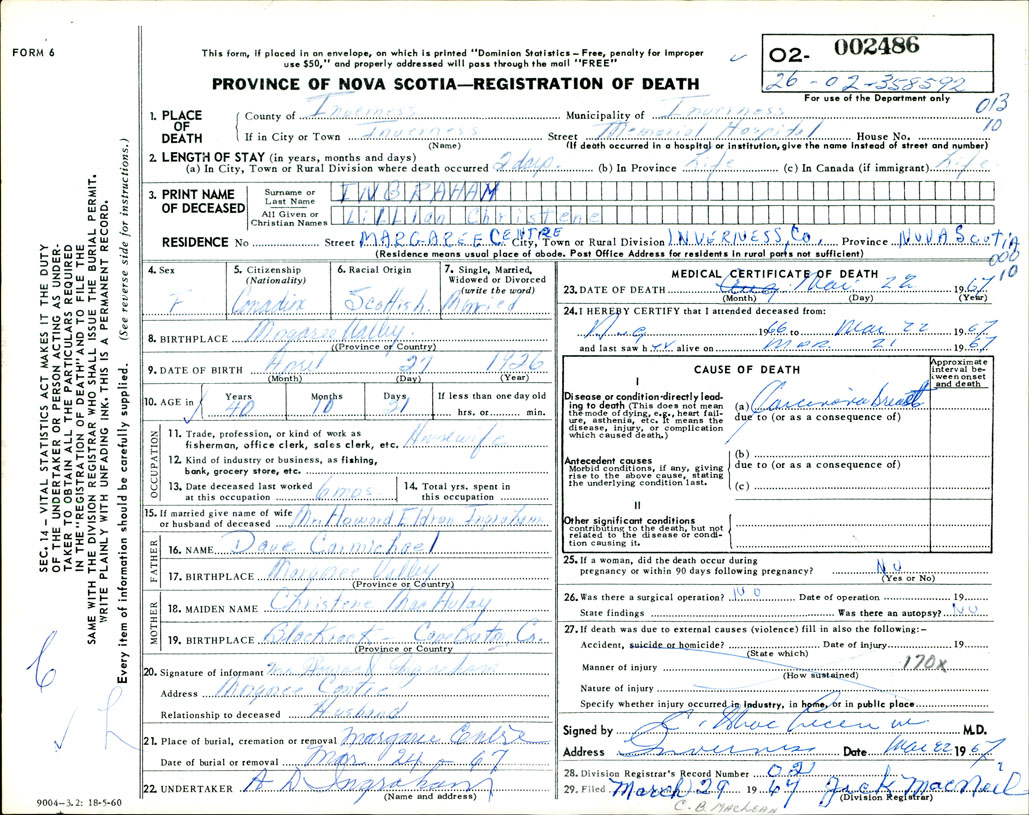 FORM 6
This form, if placed in an envelope, on which is printed "Dominion Statistics – Free, penalty for improper
use $50," and properly addressed will pass through the mail "FREE"
PROVINCE OF NOVA SCOTIA—REGISTRATION OF DEATH
02- 002486
26-02-358592
For use of the Department only
013
10
1. PLACE OF DEATH
County of Inverness Municipality of Inverness
If in City or Town Inverness Street Memorial Hospital House No.
(Name) (If death occurred in a hospital or institution, give the name instead of street and number)
2. LENGTH OF STAY (in years, months and days)
(a) In City, Town or Rural Division where death occurred 2 days (b) In Province Life (c) In Canada (if immigrant) Life
3. PRINT NAME OF DECEASED
Surname or Last Name INGRAHAM
All Given or Christian Names Lillian Christene
RESIDENCE No Street MARGAREE CENTRE City, Town or Rural Division INVERNESS, Co., Province NOVA SCOTIA
(Residence means usual place of abode. Post Office Address for residents in rural parts not sufficient)
000
10
4. Sex F
5. Citizenship (Nationality) Canadian
6. Racial Origin Scottish
7. Single, Married, Widowed or Divorced (write the word) Married
8. BIRTHPLACE Margaree Valley
(Province or Country)
9. DATE OF BIRTH April 21 1926
(Month) (Day) (Year)
10. AGE in Years 40 Months 10 Days 31 If less than one day old hrs. or min.
OCCUPATION
11. Trade, profession, or kind of work as fisherman, office clerk, sales clerk, etc. Housewife
12. Kind of industry or business, as fishing, bank, grocery store, etc.
13. Date deceased last worked at this occupation 6 mos
14. Total yrs. spent in this occupation
15. If married give name of wife or husband of deceased Mr. Howard Eldron Ingraham
FATHER
16. NAME Dave Carmichael
17. BIRTHPLACE Margaree Valley
(Province or Country)
MOTHER
18. MAIDEN NAME Christene MacAulay
19. BIRTHPLACE Blackrock – Cape Breton Co.
(Province or Country)
20. Signature of informant Mr Howard Ingraham
Address Margaree Centre
Relationship to deceased Husband
21. Place of burial, cremation or removal Margaree Centre
Date of burial or removal Mar 24 - 67
22. UNDERTAKER A D Ingraham
(Name and address)
MEDICAL CERTIFICATE OF DEATH
23. DATE OF DEATH Mar 22 1967
(Month) (Day) (Year)
24. I HEREBY CERTIFY that I attended deceased from:
Aug 1966 to Mar 22 1967
and last saw her alive on Mar 21 1967
CAUSE OF DEATH
Approximate interval between onset and death
I
Disease or condition directly leading to death (This does not mean the mode of dying, e.g., heart failure, asthenia, etc. It means the disease, injury, or complication which caused death.)
(a) Carcinoma breast
due to (or as a consequence of)
Antecedent causes
Morbid conditions, if any, giving rise to the above cause, stating the underlying condition last.
(b)
due to (or as a consequence of)
(c)
II
Other significant conditions contributing to the death, but not related to the disease or condition causing it.
25. If a woman, did the death occur during pregnancy or within 90 days following pregnancy? NO
(Yes or No)
26. Was there a surgical operation? NO Date of operation 19
State findings Was there an autopsy? NO
27. If death was due to external causes (violence) fill in also the following:–
Accident, suicide or homicide? Date of injury 19
(State which)
Manner of injury 170X
(How sustained)
Nature of injury
Specify whether injury occurred in industry, in home, or in public place
Signed by M.D.
Address Inverness Date Mar 22 1967
28. Division Registrar's Record Number 02
29. Filed March 29 1967 Jack MacNeil
(Division Registrar)
C. B. MacLean
9004–3.2: 18-5-60
SEC. 14 – VITAL STATISTICS ACT MAKES IT THE DUTY
OF THE UNDERTAKER OR PERSON ACTING AS UNDER-
TAKER TO OBTAIN ALL THE PARTICULARS REQUIRED
IN THE "REGISTRATION OF DEATH" AND TO FILE THE
SAME WITH THE DIVISION REGISTRAR WHO SHALL ISSUE THE BURIAL PERMIT.
WRITE PLAINLY WITH UNFADING INK. THIS IS A PERMANENT RECORD.
Every item of information should be carefully supplied. (See reverse side for instructions.)